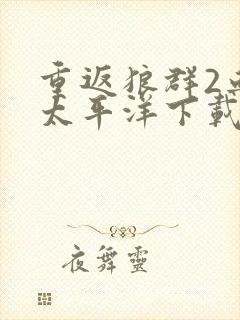 重返狼群2
太平洋下載
夜舞靈